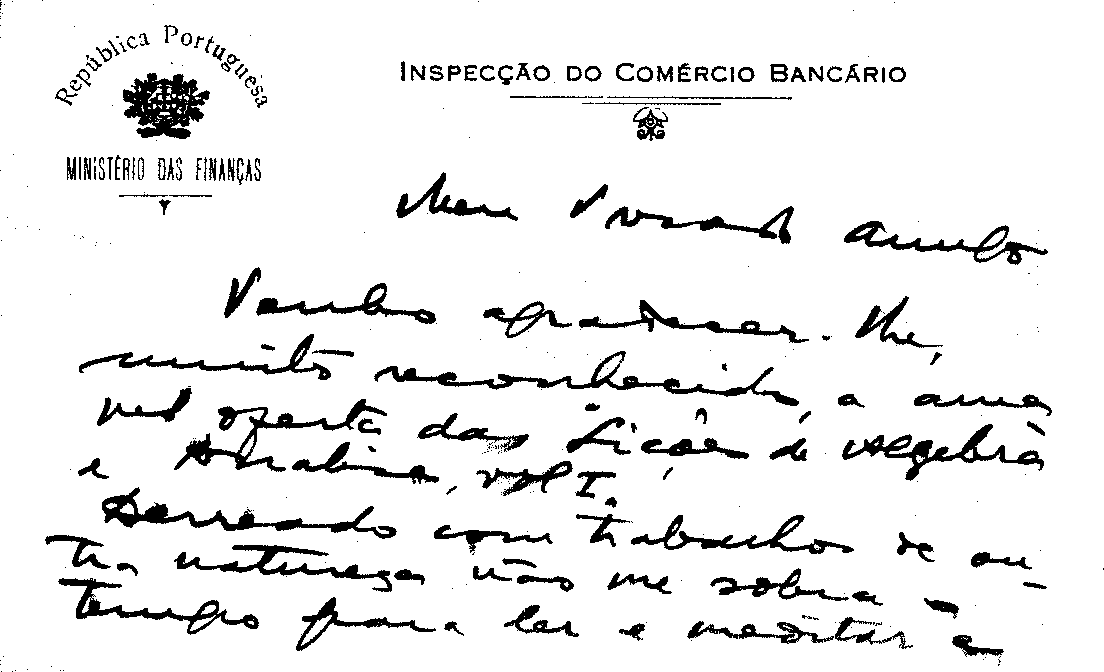 República Portuguesa
MINISTÉRIO DAS FINANÇAS
INSPECÇÃO DO COMÉRCIO BANCÁRIO
Meu Prezado Amigo
Venho agradecer-lhe,
muito reconhecido, a ama
vel oferta das Lições de Algebra
e Analise, vol I.
Derreado com trabalhos de ou-
tra natureza não me sobra o
tempo para ler e meditar e